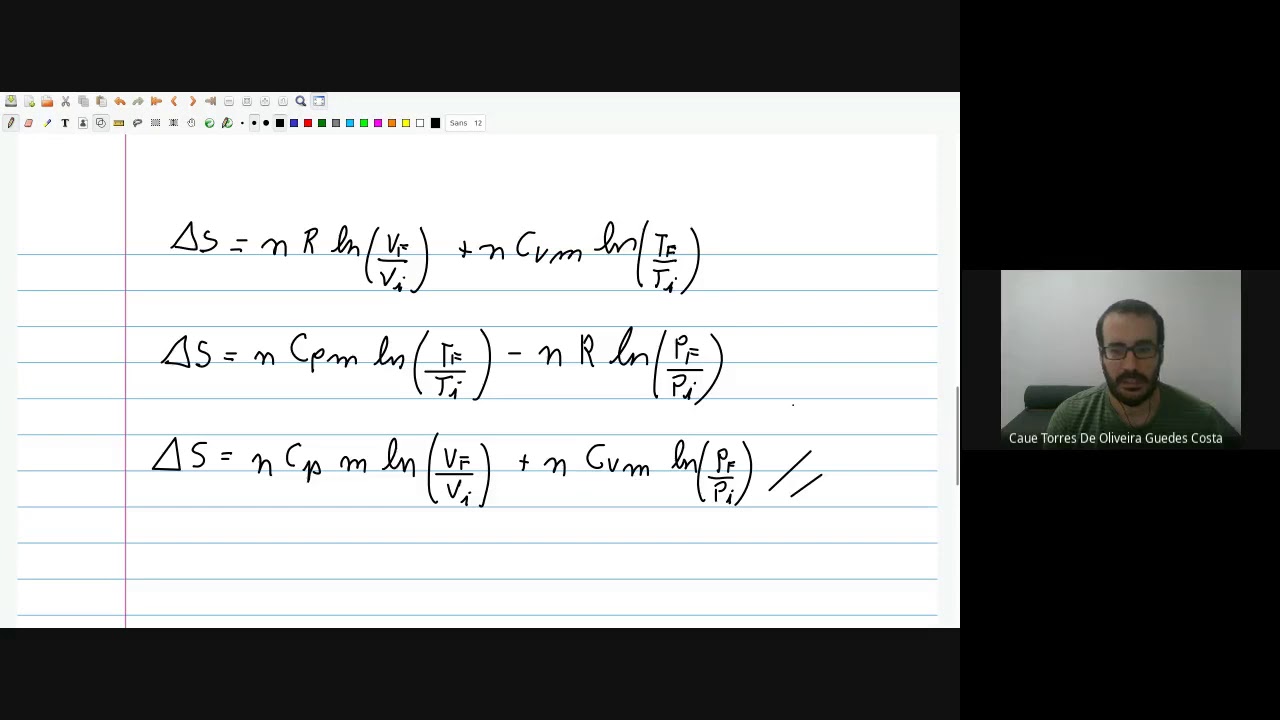 Sans 12
ΔS = n R ln(VF/Vi) + n Cvm ln(TF/Ti)
ΔS = n Cpm ln(TF/Ti) - n R ln(PF/Pi)
ΔS = n Cpm ln(VF/Vi) + n Cvm ln(PF/Pi) //
Caue Torres De Oliveira Guedes Costa